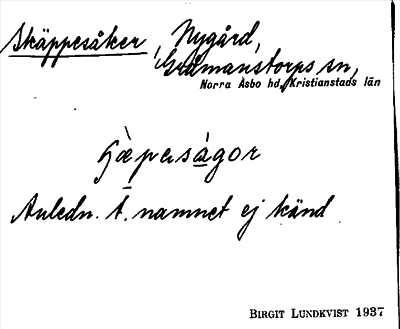 Skäppesåker, Nygård,
Gråmanstorps sn,
Norra Åsbo hd, Kristianstads län
Anledn. t. namnet ej känd
BIRGIT LUNDKVIST 1937